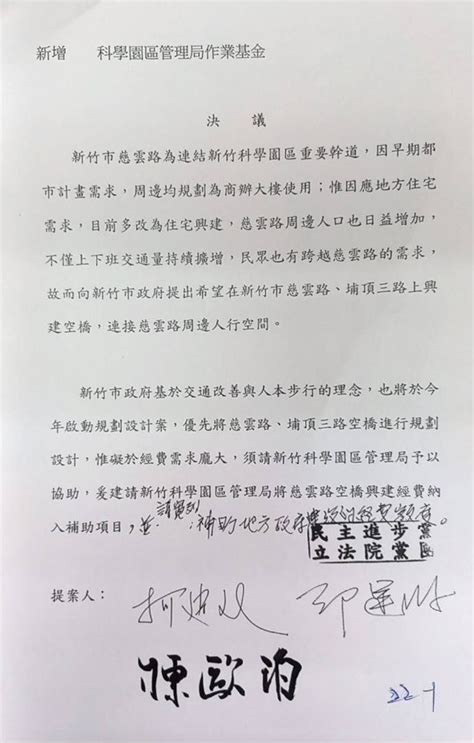 新增　　科學園區管理局作業基金
決　議
新竹市慈雲路為連結新竹科學園區重要幹道，因早期都
市計畫需求，周邊均規劃為商辦大樓使用；惟因應地方住宅
需求，目前多改為住宅興建，慈雲路周邊人口也日益增加，
不僅上下班交通量持續擴增，民眾也有跨越慈雲路的需求，
故而向新竹市政府提出希望在新竹市慈雲路、埔頂三路上興
建空橋，連接慈雲路周邊人行空間。
新竹市政府基於交通改善與人本步行的理念，也將於今
年啟動規劃設計案，優先將慈雲路、埔頂三路空橋進行規劃
設計，惟礙於經費需求龐大，須請新竹科學園區管理局予以
協助，爰建請新竹科學園區管理局將慈雲路空橋興建經費納
入補助項目，並補助地方政府
民主進步黨
立法院黨團
提案人：
陳歐珀
22-1